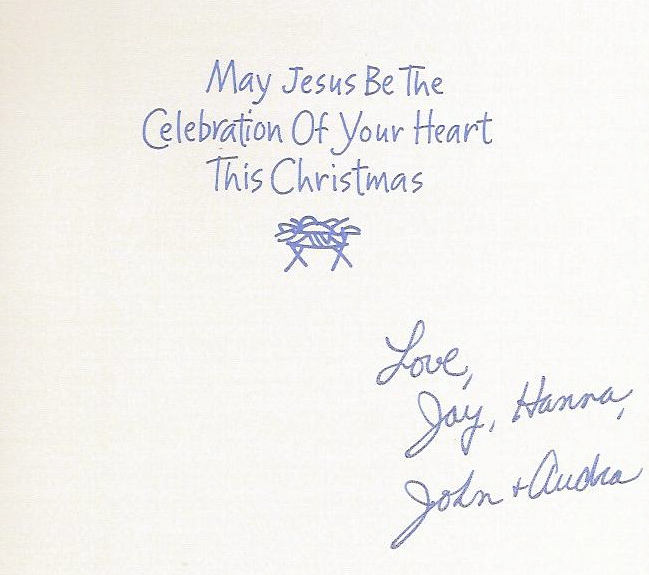 May Jesus Be The
Celebration Of Your Heart
This Christmas
Love,
Jay, Hanna,
John + Audra